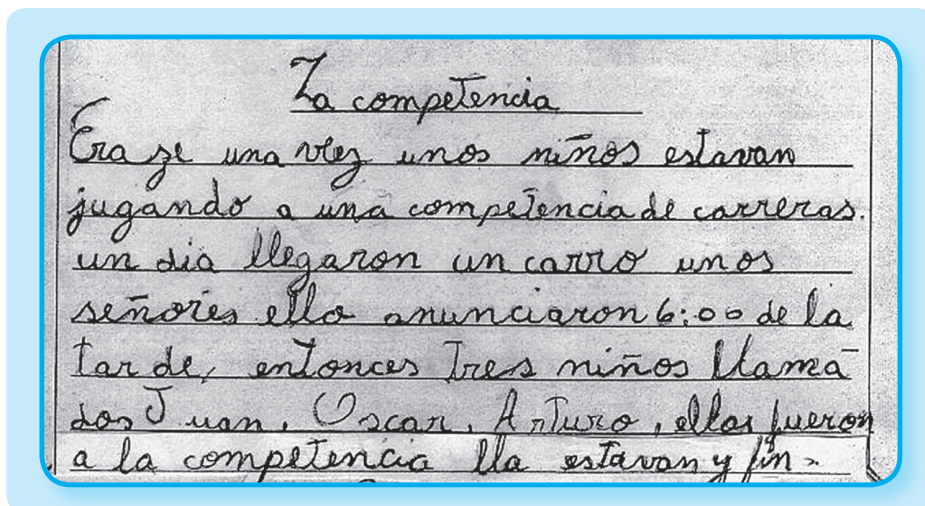 La competencia
Era se una vez unos niños estavan
jugando a una competencia de carreras.
un dia llegaron un carro unos
señores ello anunciaron 6:00 de la
tar de, entonces Tres niños llama
dos Juan, Oscar, Arturo, ellos fueron
a la competencia lla estavan y fin.